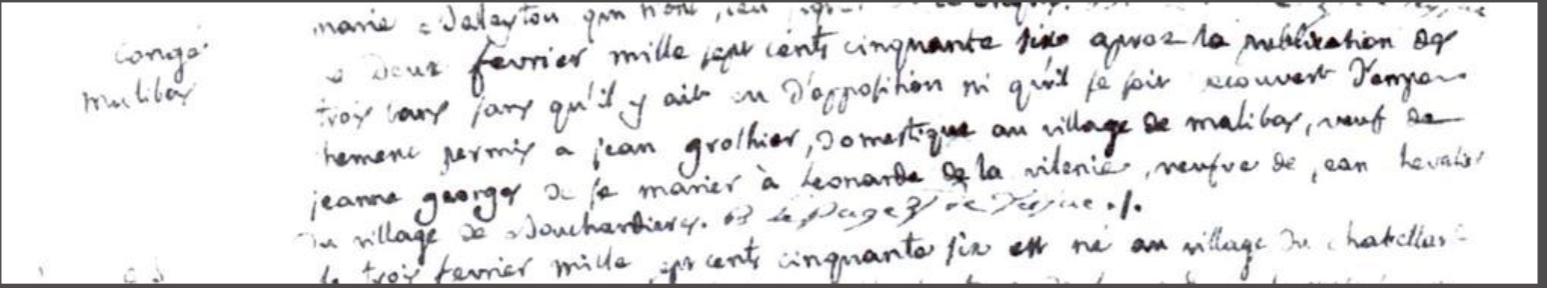 congé
malibas
marie
deux fevrier mille sept cents cinquante six apres la publication des
trois bans sans qu'il y ait eu d'opposition ni qu'il se soit decouvert d'empe-
chement permis a jean grolhier, domestique au village de malibas, veuf de
jeanne georges de se marier à Leonarde de la vilenie, veufve de jean
du village de Bouchardieres.
le trois fevrier mille sept cents cinquante six est né au village du chatellas